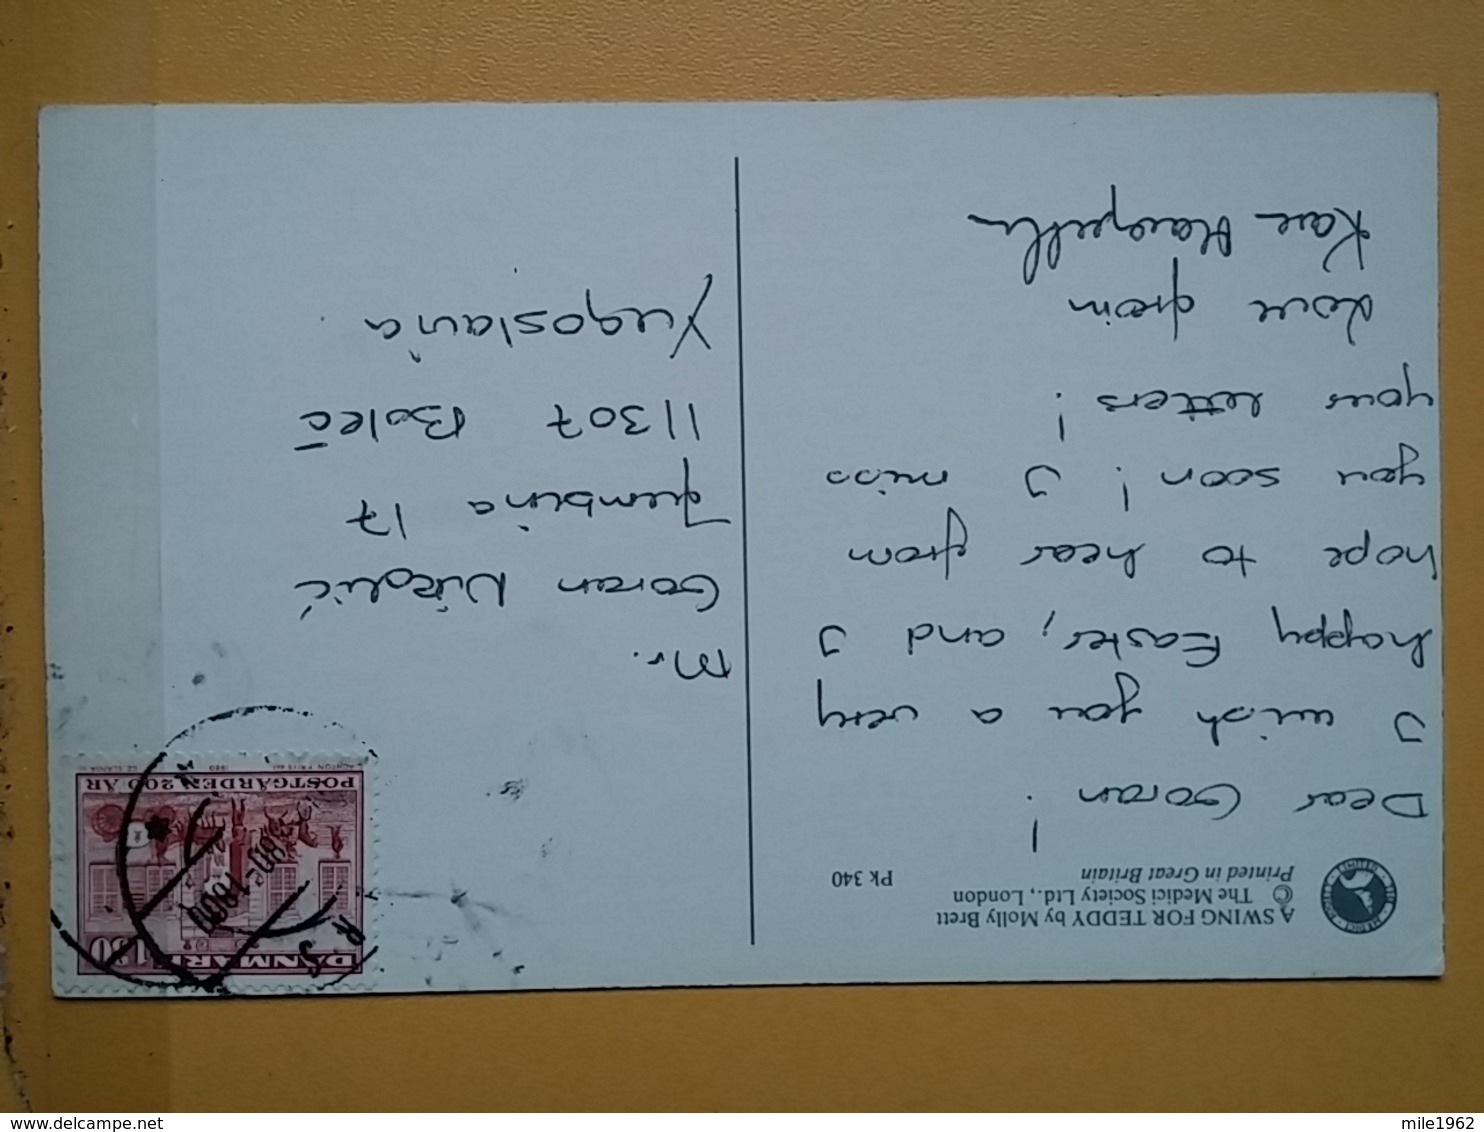 A SWING FOR TEDDY by Molly Brett
© The Medici Society Ltd., London
Printed in Great Britain
Pk 340
Dear Goran!
I wish you a very
happy Easter, and I
hope to hear from
you soon! I miss
your letters!
Love from
DANMARK 130
POSTGÅRDEN 200 ÅR
Mr.
Goran Nikolić
17
11307 Boleč
Yugoslavia
mile1962